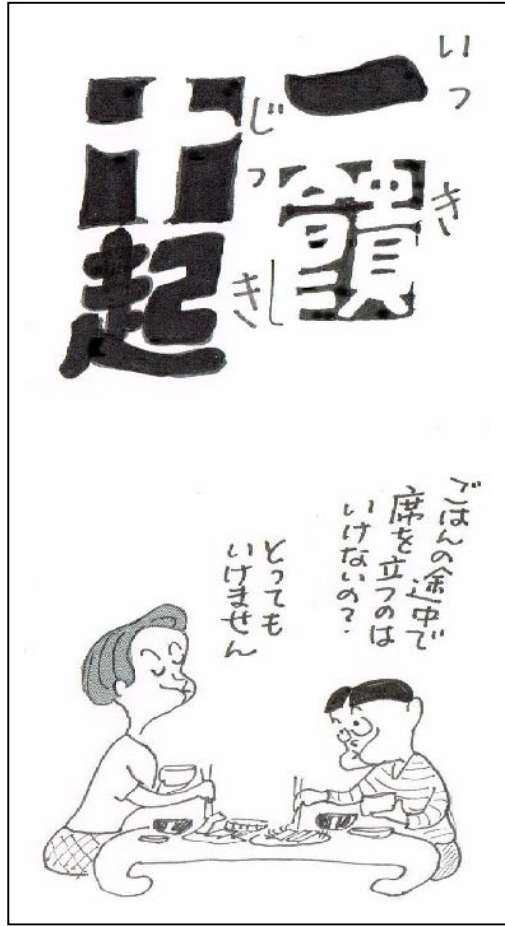 一饋
いっき
十起
じっき
ごはんの途中で
席を立つのは
いけないの？
とっても
いけません